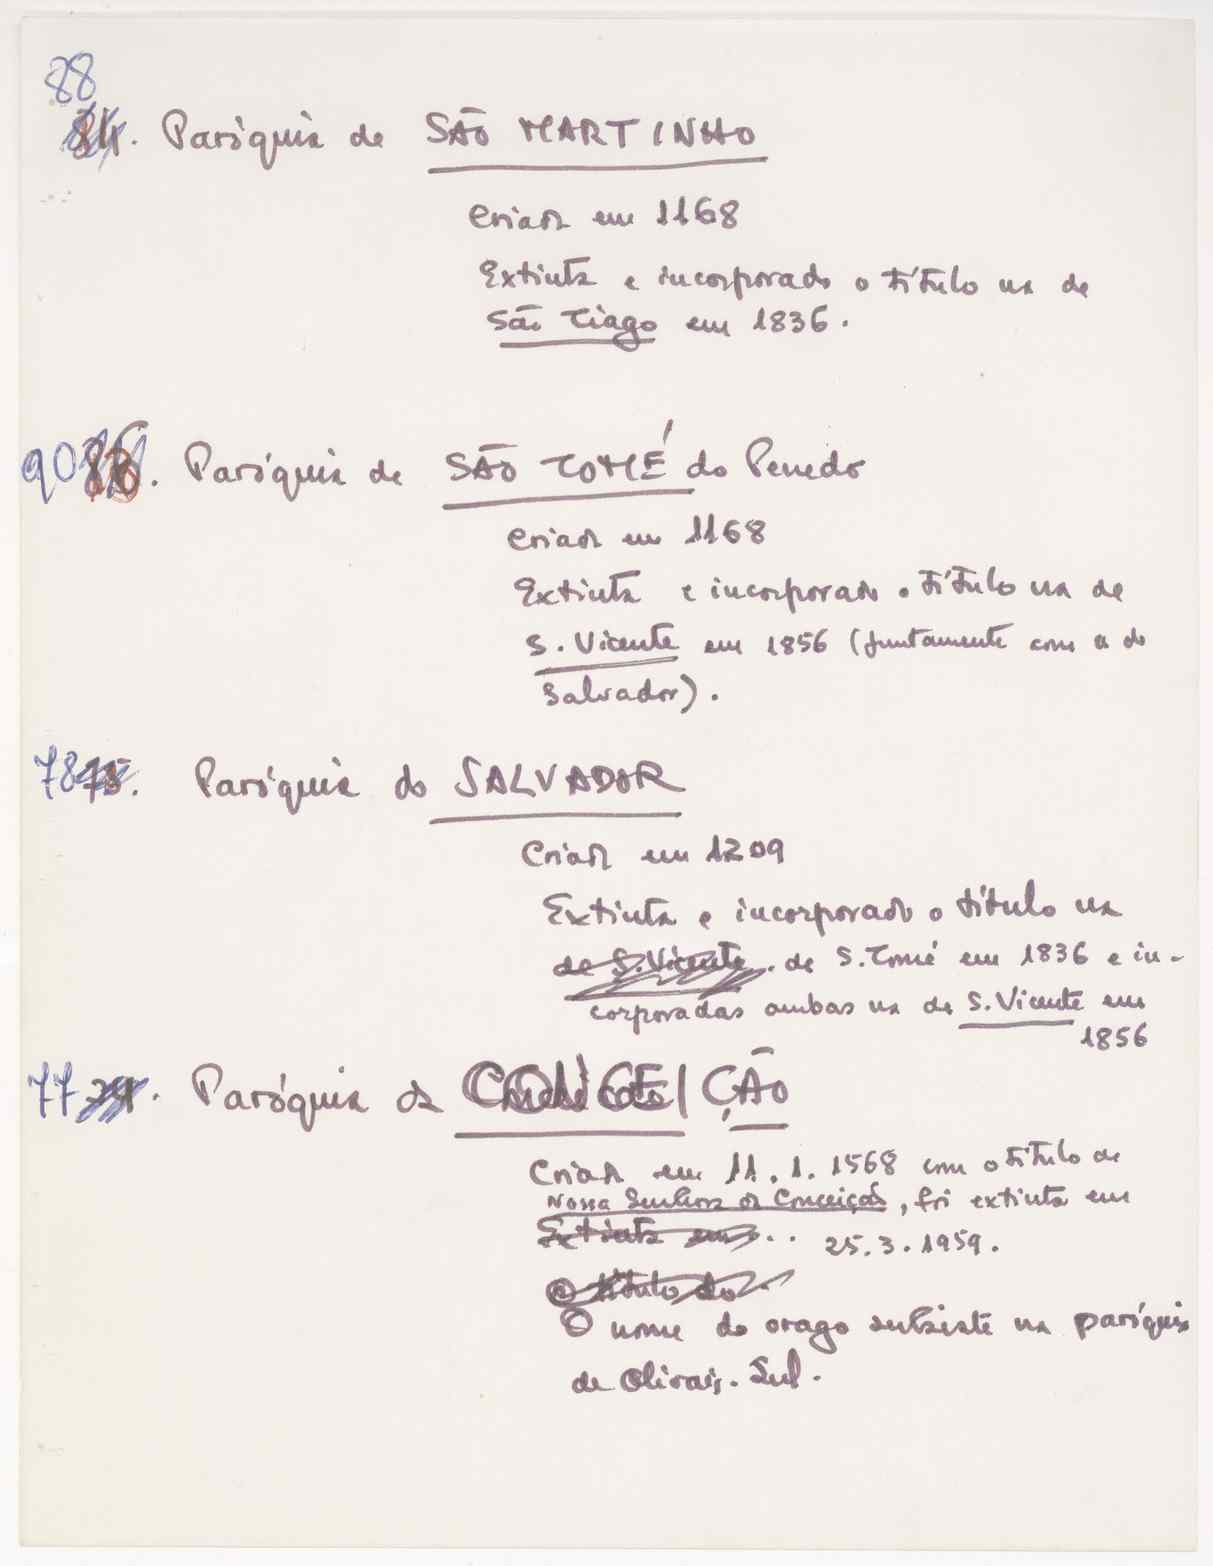 88
84. Paróquia de SÃO MARTINHO
Criada em 1168
Extinta e incorporado o título na de
São Tiago em 1836.
90 . Paróquia de SÃO TOMÉ do Penedo
Criada em 1168
Extinta e incorporado o título na de
S. Vicente em 1856 (juntamente com a do
Salvador).
78 75. Paróquia do SALVADOR
Criada em 1209
Extinta e incorporado o título na
de S. Vicente. de S. Tomé em 1836 e in-
corporadas ambas na de S. Vicente em
1856
77 . Paróquia da CONCEIÇÃO
Criada em 11.1.1568 com o título de
Nossa Senhora da Conceição, foi extinta em
Extinta em... 25.3.1959.
O título do
O nome do orago subsiste na paróquia
de Olivais-Sul.